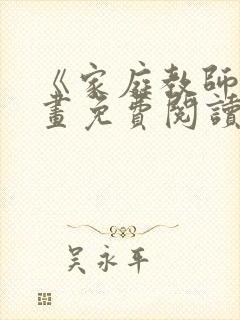 《家庭教師
畫免費閱讀
吳永平